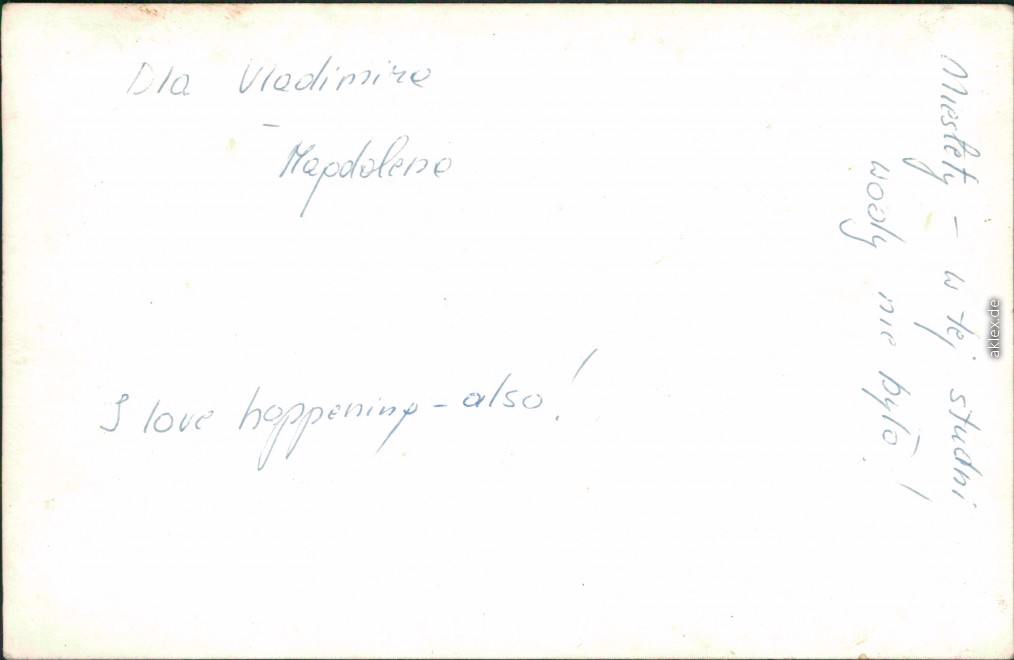 Dla Vladimira
–
Magdalena
I love happening – also!
Niestety – w tej studni
wody nie było!
aklex.de